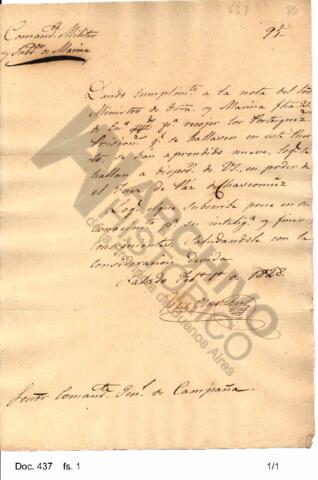 637
Comand.ª Militar
y Subd.ⁿ de Marina
Dando cumplim.to a la nota del Sor
Ministro de Grra. y Marina fha
de En.º pª recojer los Portuguez.
q.e se hallasen en este
se han aprendido nueve, los q.e se
hallan a dispos.n de VS. en poder de
el Juez de Paz de Chascomuz
Lo q.e el que subscribe pone en su
conocim.to p.ª su intelig.ª y fines
consiguientes Saludandole con la
consideracion devida
Salado Feb.o 1.º de 1828.
Señor Comand.te Gen.l de Campaña.
ARCHIVO
HISTORICO
de la Provincia de Buenos Aires
Doc. 437 fs. 1 1/1